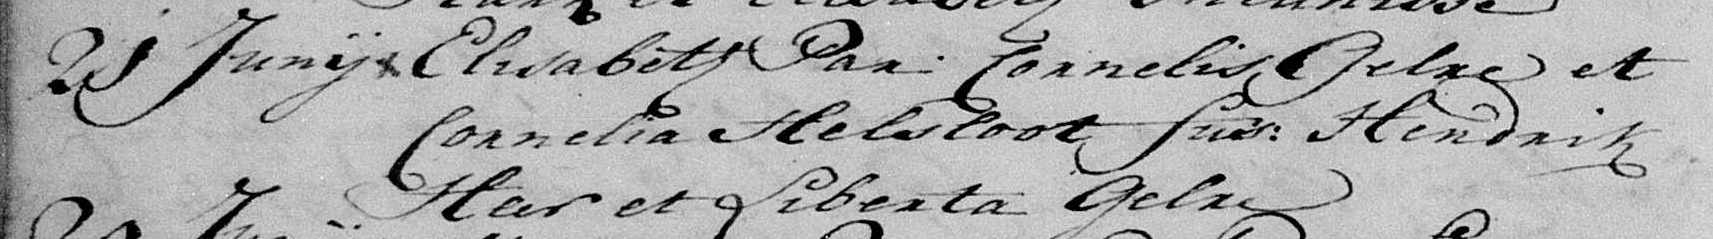 et Elisabeth
21 Junij Elisabeth Par: Cornelis Gelre et
Cornelia Helsloot Sus: Hendrik
Heer et Liberta Gelre